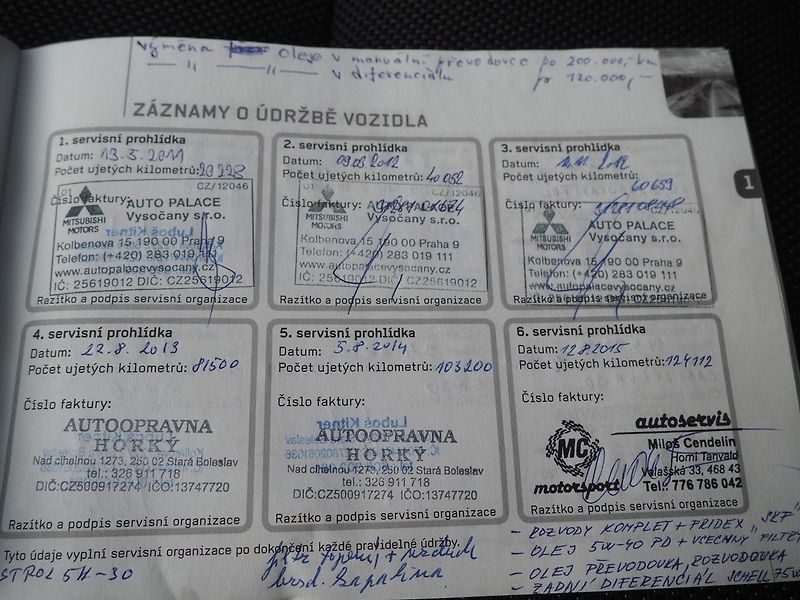 výměna oleje v manuální převodovce po 200.000,- km
— " — — " — v diferenciálu po 120.000,-
ZÁZNAMY O ÚDRŽBĚ VOZIDLA
1
1. servisní prohlídka
Datum: 13.5.2011
Počet ujetých kilometrů: 20228
01 CZ/12046
Číslo faktury:
MITSUBISHI MOTORS
AUTO PALACE
Vysočany s.r.o.
Kolbenova 15 190 00 Praha 9
Telefon: (+420) 283 019 111
www.autopalacevysocany.cz
IČ: 25619012 DIČ: CZ25619012
Razítko a podpis servisní organizace
2. servisní prohlídka
Datum: 2012
Počet ujetých kilometrů: 40052
01 CZ/12046
Číslo faktury:
MITSUBISHI MOTORS
AUTO PALACE
Vysočany s.r.o.
Kolbenova 15 190 00 Praha 9
Telefon: (+420) 283 019 111
www.autopalacevysocany.cz
IČ: 25619012 DIČ: CZ25619012
Razítko a podpis servisní organizace
3. servisní prohlídka
Datum: 2012
Počet ujetých kilometrů:
60659
Číslo faktury:
MITSUBISHI MOTORS
AUTO PALACE
Vysočany s.r.o.
Kolbenova 15 190 00 Praha 9
Telefon: (+420) 283 019 111
www.autopalacevysocany.cz
Razítko a podpis servisní organizace
4. servisní prohlídka
Datum: 22.8.2013
Počet ujetých kilometrů: 81500
Číslo faktury:
AUTOOPRAVNA
HORKÝ
Nad cihelnou 1273, 250 02 Stará Boleslav
tel.: 326 911 718
DIČ:CZ500917274 IČO:13747720
Razítko a podpis servisní organizace
5. servisní prohlídka
Datum: 5.8.2014
Počet ujetých kilometrů: 103200
Číslo faktury:
AUTOOPRAVNA
HORKÝ
Nad cihelnou 1273, 250 02 Stará Boleslav
tel.: 326 911 718
DIČ:CZ500917274 IČO:13747720
Razítko a podpis servisní organizace
6. servisní prohlídka
Datum: 12.8.2015
Počet ujetých kilometrů: 124112
Číslo faktury:
MC motorsport
autoservis
Miloš Cendelín
Horní Tanvald
Valašská 33, 468 43
Tel.: 776 786 042
Razítko a podpis servisní organizace
Tyto údaje vyplní servisní organizace po dokončení každé pravidelné údržby.
STROL 5W-30
brzd. kapalina
- ROZVODY KOMPLET + FRIDEX "SKF"
- OLEJ 5W-40 PD + VŠECHNY FILTRY
- OLEJ PŘEVODOVKA, ROZVODOVKA
- ZADNÍ DIFERENCIÁL SCHELL 75W